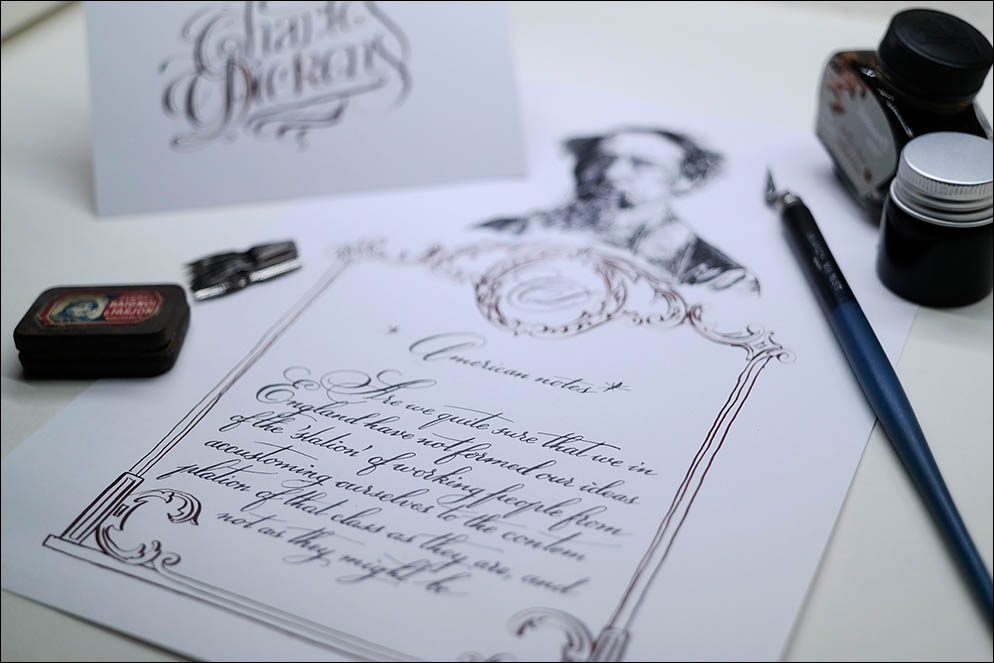 Charle
Dickens
BAIGNOL
& FARJON
American notes
Are we quite sure that we in
England have not formed our ideas
of the 'station' of working people from
accustoming ourselves to the contem
plation of that class as they are, and
not as they might be